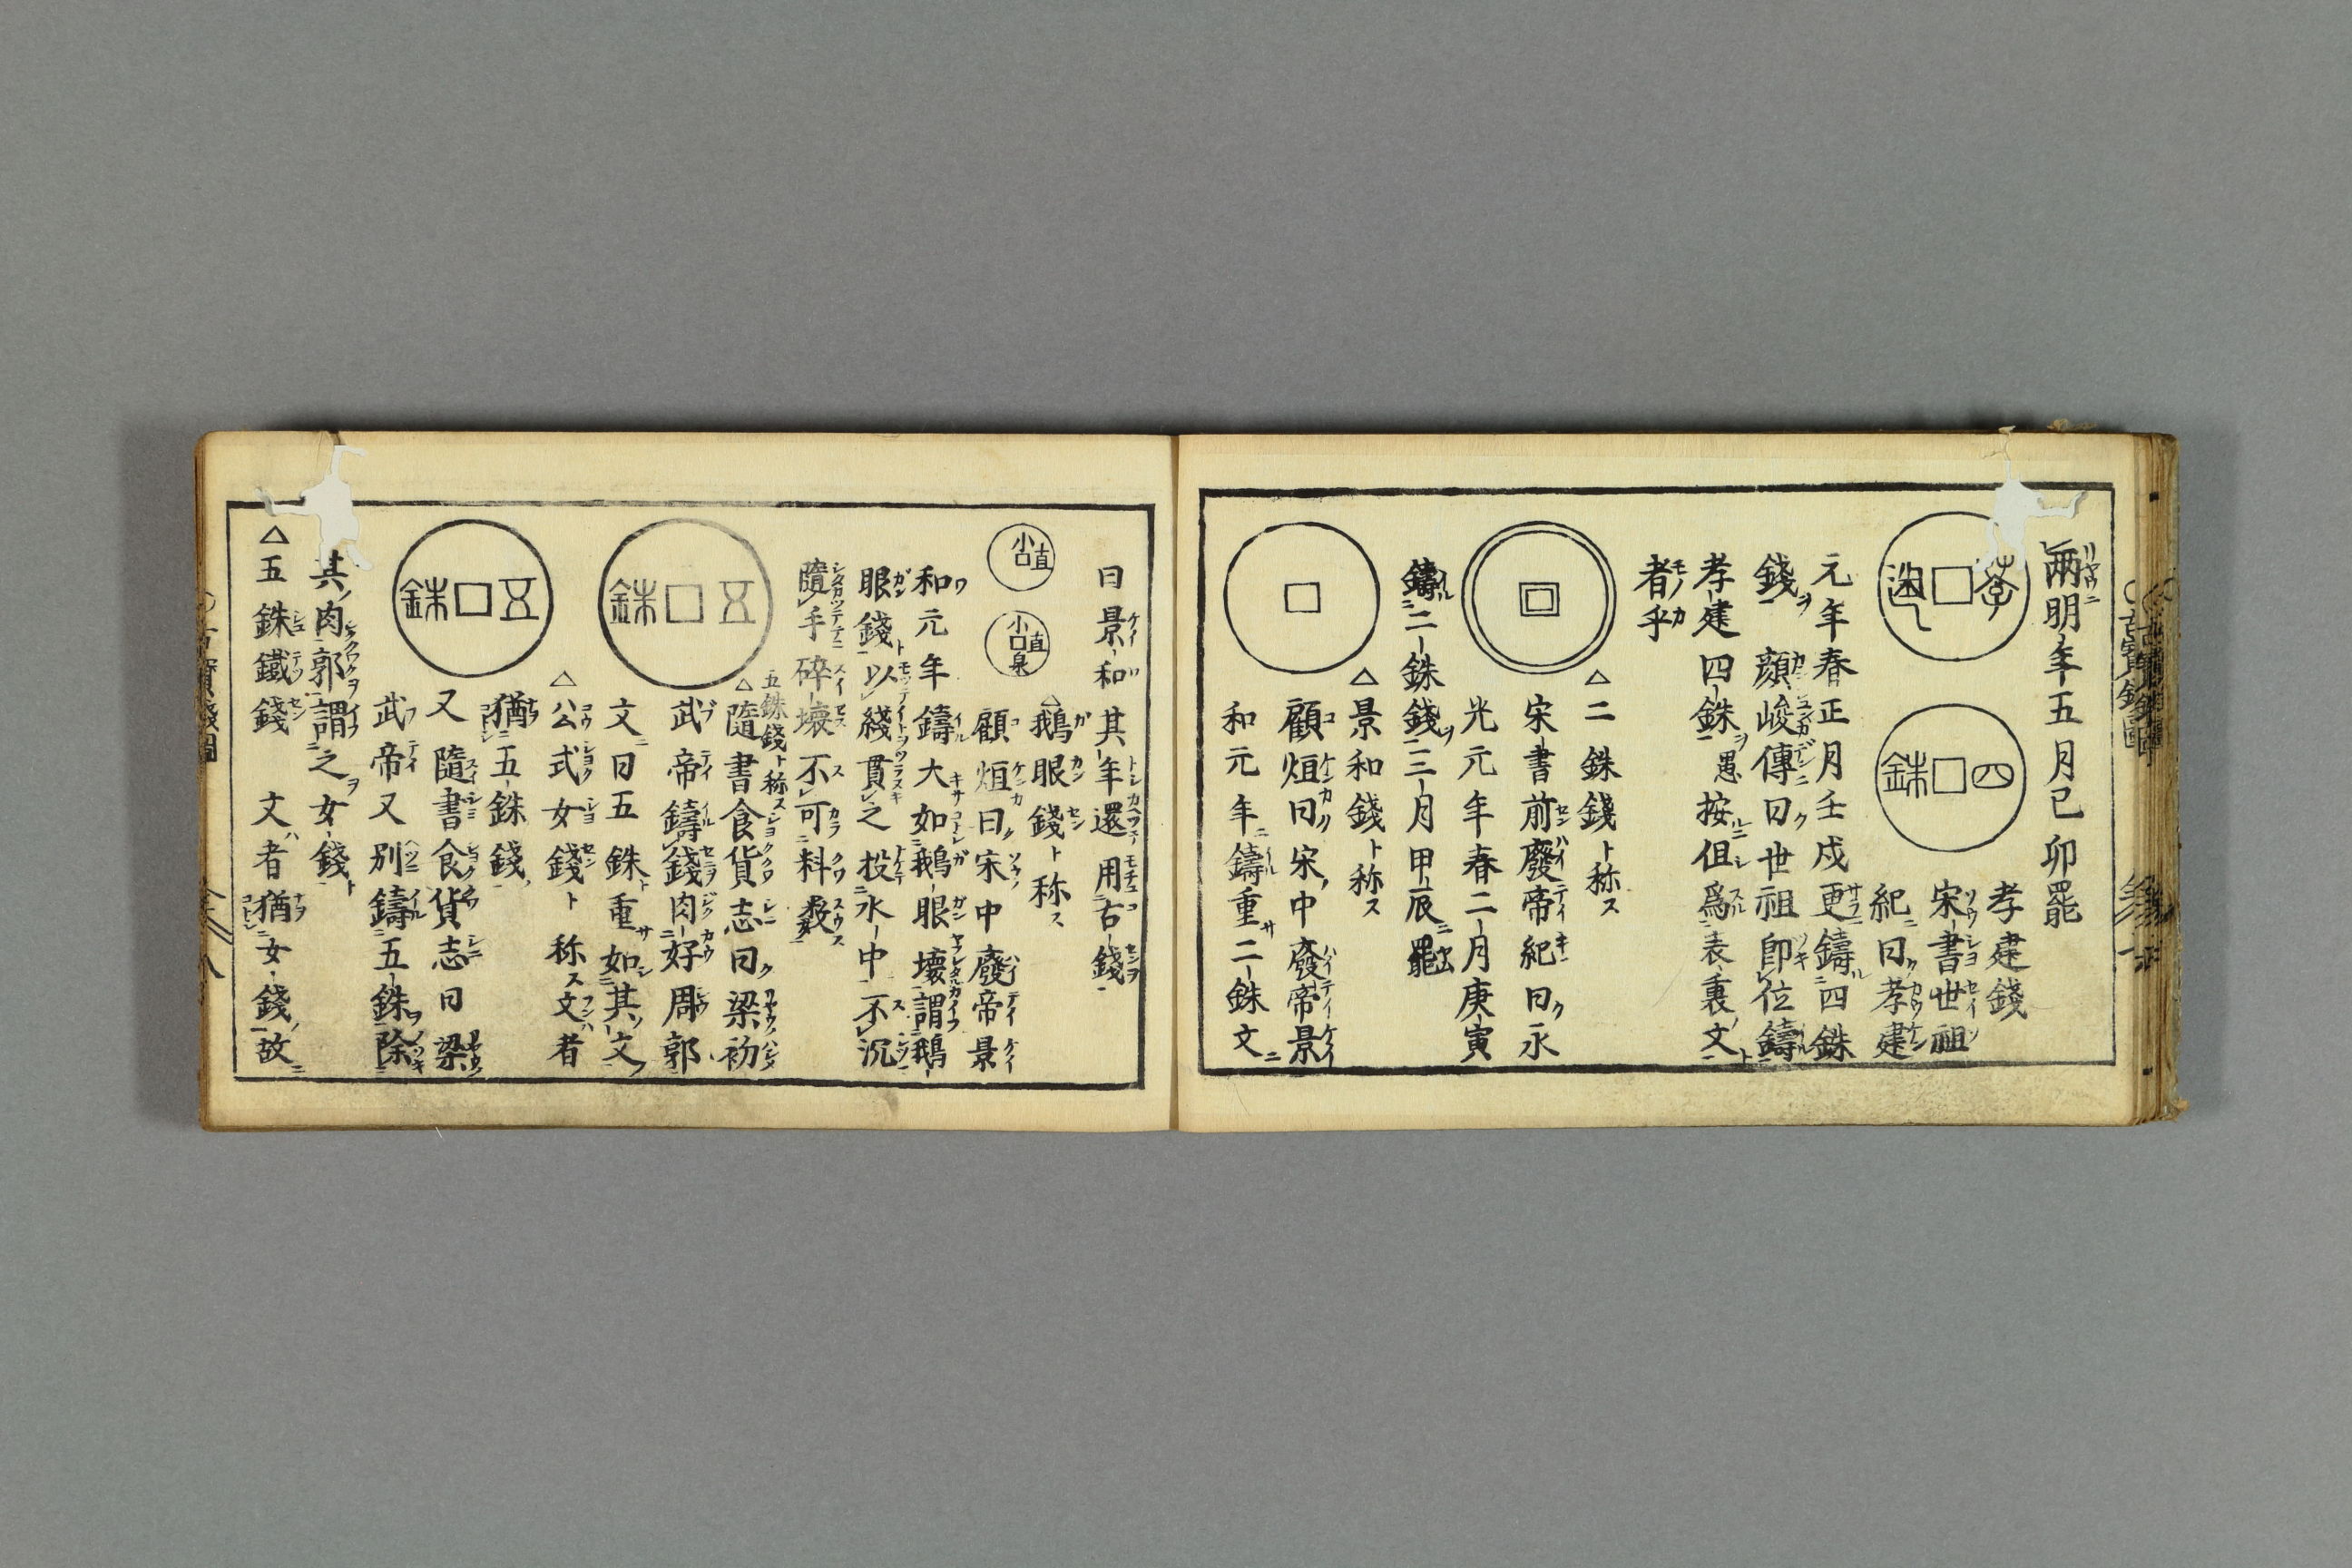 兩明年五月己卯罷
孝建
四銖
孝建錢
宋書世祖
紀曰孝建
元年春正月壬戍更鑄四銖
錢 顔峻傳曰世祖卽位鑄
孝建四銖 愚按伹爲表裏文
者乎
△二銖錢ト称ス
宋書前廢帝紀曰永
光元年春二月庚寅
鑄二銖錢三月甲辰罷
△景和錢ト称ス
顧烜曰宋中廢帝景
和元年鑄重二銖文
曰景和其年還用古錢
小直
小直泉
△鵝眼錢ト称ス
顧烜曰宋中廢帝景
和元年鑄大如鵝眼壞謂鵝
眼錢以綫貫之投水中不沉
隨手碎壞不可料数
五銖
五銖錢ト称ス
△隨書食貨志曰梁初
武帝鑄錢肉好周郭
文曰五銖重如其文
△公式女錢ト称ス文者
五銖
猶五銖錢
又隨書食貨志曰梁
武帝又別鑄五銖除
其肉郭謂之女錢
△五銖鐵錢 文者猶女錢故